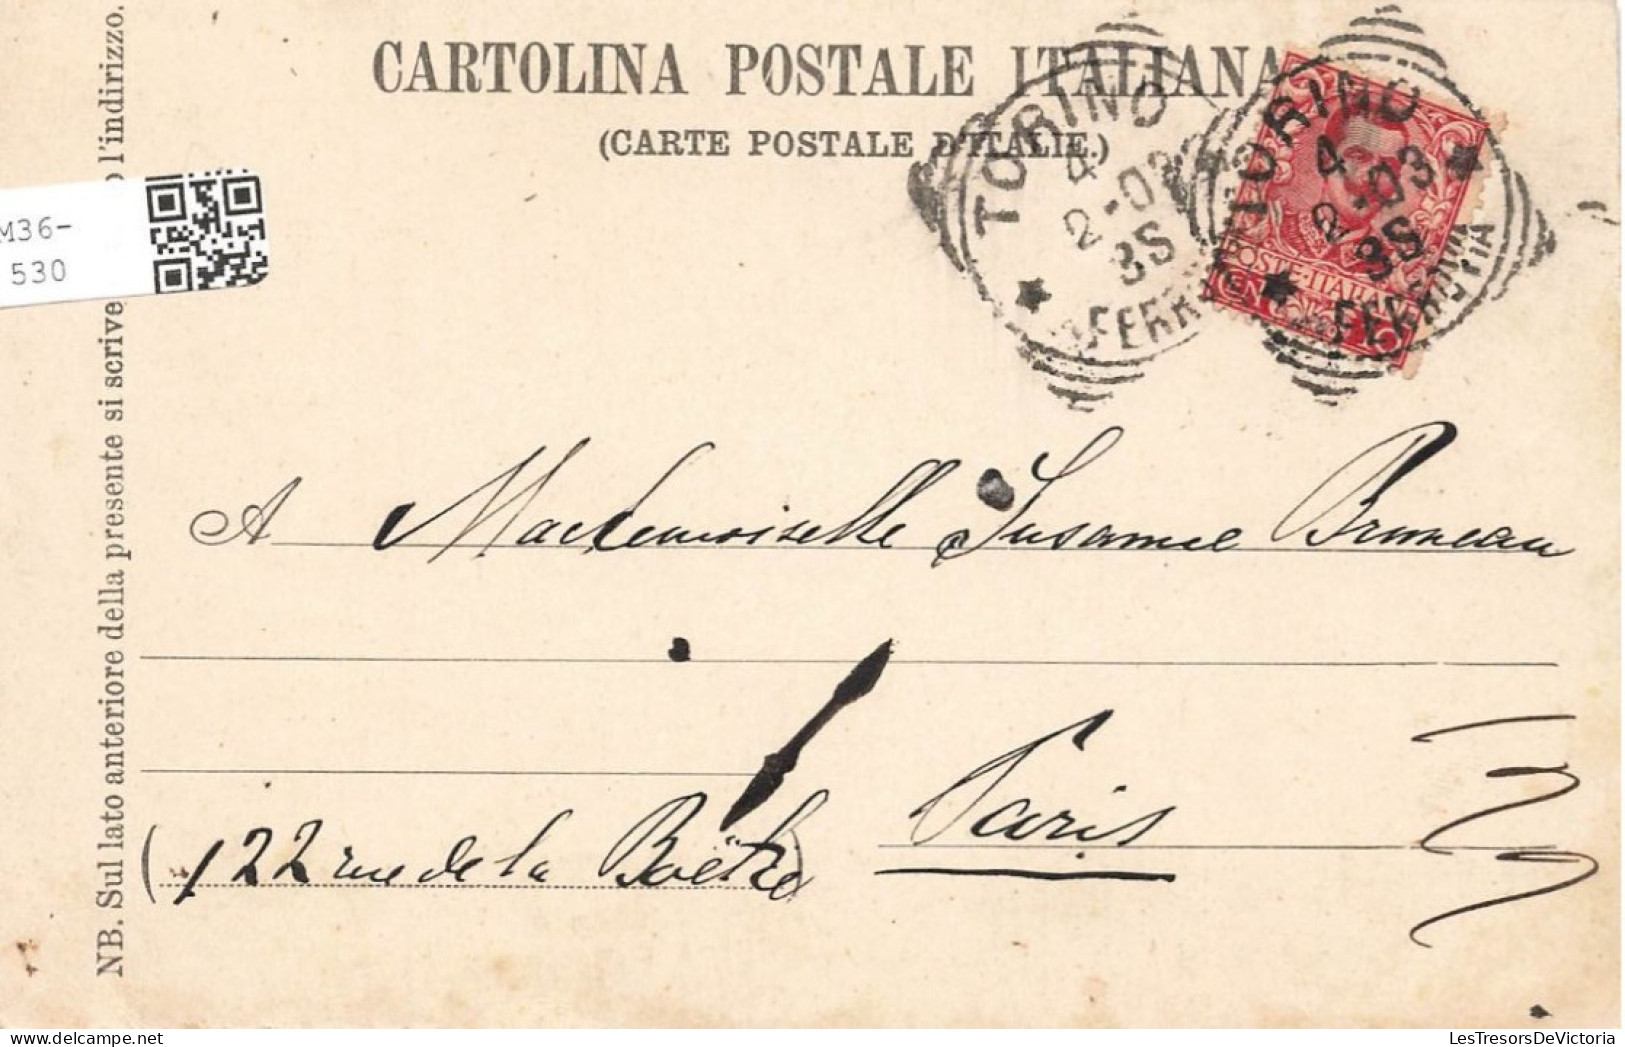 CARTOLINA POSTALE ITALIANA
(CARTE POSTALE D'ITALIE.)
TORINO
4
2-03
8S
FERROVIA
TORINO
4
2-03
8S
FERROVIA
POSTE·ITALIANE
M36-
530
NB. Sul lato anteriore della presente si scrive o l'indirizzo.
A Mademoiselle Susanne Bruneau
Paris
(122 rue de la Boëtie)
LesTresorsDeVictoria